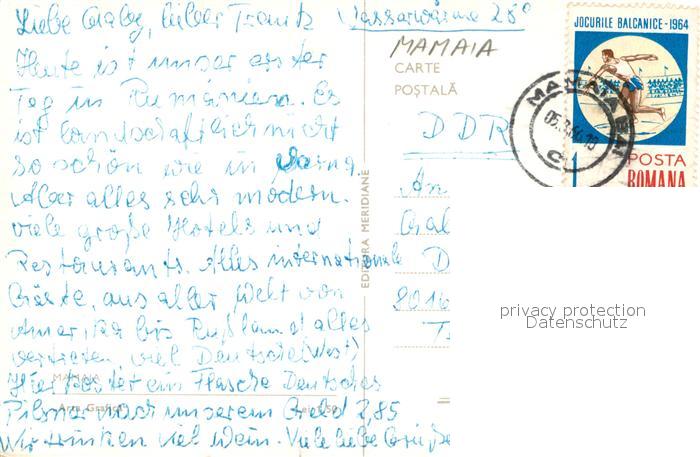 Liebe Gaby, lieber Frantz Wasserwärme 25°
Heute ist unser erster
Tag in Rumänien. Es
ist landschaftlich nicht
so schön wie in Varna.
Aber alles sehr modern.
viele große Hotels und
Restaurants. Alles internationale
Gäste, aus aller Welt von
Amerika bis Rußland alles
vertreten viel Deutsche (West)
Hier kostet ein Flasche Deutsches
Pilsner nach unserem Geld 2,85
Wir trinken viel Wein. Viele liebe Grüße
MAMAIA
CARTE
POȘTALĂ
DDR
An
Gab
D
8016
EDITURA MERIDIANE
MAMAIA
"Arta Grafică"
JOCURILE BALCANICE-1964
1
POSTA
ROMANA
MAMAIA BAI
privacy protection
Datenschutz